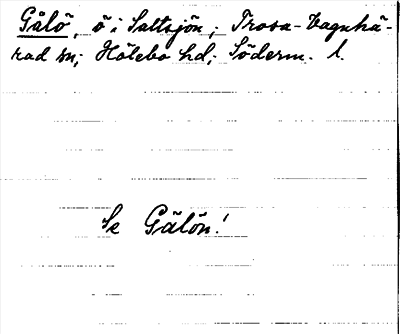 Gålö, ö i Saltsjön; Trosa-Vagnhä-
rad sn; Hölebo hd; Söderm. l.
Se Gålön!